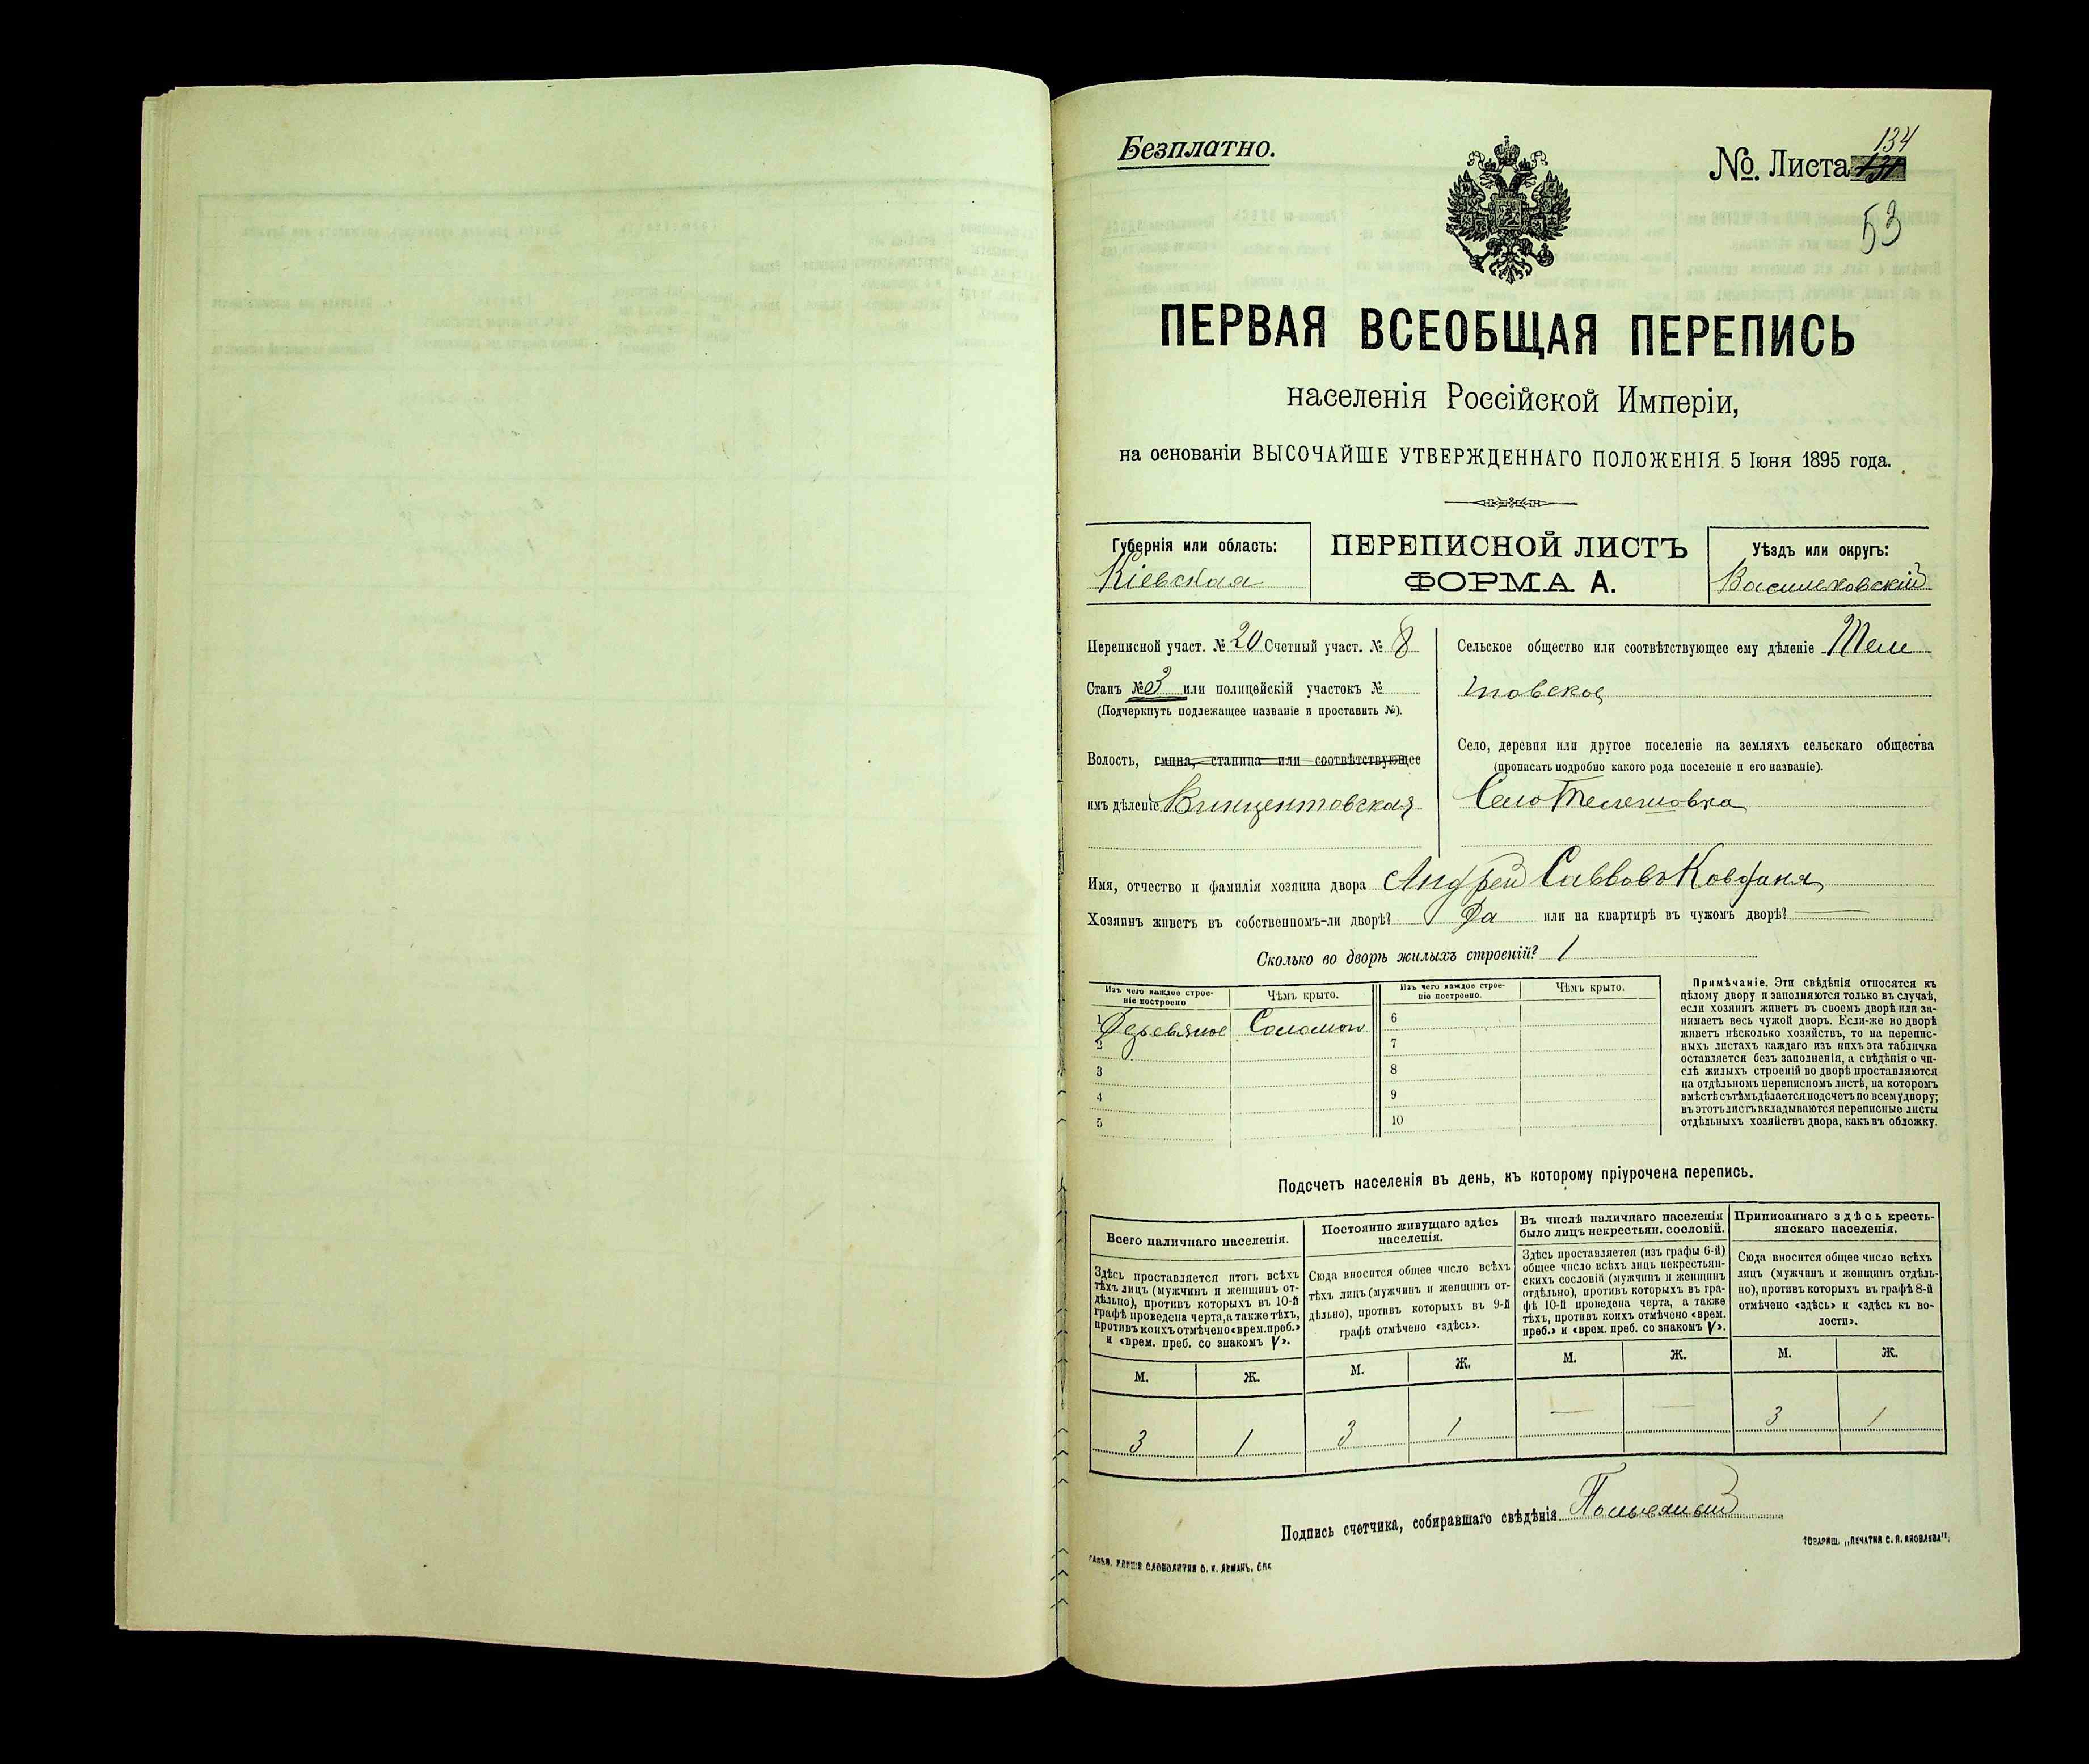 Безплатно.
№. Листа 134
53
ПЕРВАЯ ВСЕОБЩАЯ ПЕРЕПИСЬ
населенія Россійской Имперіи,
на основаніи ВЫСОЧАЙШЕ УТВЕРЖДЕННАГО ПОЛОЖЕНІЯ 5 Іюня 1895 года.
Губернія или область:
Кіевская
ПЕРЕПИСНОЙ ЛИСТЪ
ФОРМА А.
Уѣздъ или округъ:
Васильковскій
Переписной участ. № 20 Счетный участ. № 8
Станъ № 3 или полицейскій участокъ №
(Подчеркнуть подлежащее названіе и проставить №).
Волость, гмина, станица или соотвѣтствующее
имъ дѣленіе Винцентовская
Сельское общество или соотвѣтствующее ему дѣленіе Теле
шовское
Село, деревня или другое поселеніе на земляхъ сельскаго общества
(прописать подробно какого рода поселеніе и его названіе).
Село Телешовка
Имя, отчество и фамилія хозяина двора Андрей Саввовъ Ковбаня
Хозяинъ живетъ въ собственномъ-ли дворѣ? Да или на квартирѣ въ чужомъ дворѣ? —
Сколько во дворѣ жилыхъ строеній? 1
Изъ чего каждое строеніе построено
Чѣмъ крыто.
Изъ чего каждое строеніе построено.
Чѣмъ крыто.
1 Деревяное Соломою
2
3
4
5
6
7
8
9
10
Примѣчаніе. Эти свѣдѣнія относятся къ
цѣлому двору и заполняются только въ случаѣ,
если хозяинъ живетъ въ своемъ дворѣ или за-
нимаетъ весь чужой дворъ. Если-же во дворѣ
живетъ нѣсколько хозяйствъ, то на перепис-
ныхъ листахъ каждаго изъ нихъ эта табличка
оставляется безъ заполненія, а свѣдѣнія о чи-
слѣ жилыхъ строеній во дворѣ проставляются
на отдѣльномъ переписномъ листѣ, на которомъ
вмѣстѣ съ тѣмъ дѣлается подсчетъ по всему двору;
въ этотъ листъ вкладываются переписные листы
отдѣльныхъ хозяйствъ двора, какъ въ обложку.
Подсчетъ населенія въ день, къ которому пріурочена перепись.
Всего наличнаго населенія.
Здѣсь проставляется итогъ всѣхъ
тѣхъ лицъ (мужчинъ и женщинъ от-
дѣльно), противъ которыхъ въ 10-й
графѣ проведена черта, а также тѣхъ,
противъ коихъ отмѣчено «врем. преб.»
и «врем. преб. со знакомъ V».
Постоянно живущаго здѣсь
населенія.
Сюда вносится общее число всѣхъ
тѣхъ лицъ (мужчинъ и женщинъ от-
дѣльно), противъ которыхъ въ 9-й
графѣ отмѣчено «здѣсь».
Въ числѣ наличнаго населенія
было лицъ некрестьян. сословій.
Здѣсь проставляется (изъ графы 6-й)
общее число всѣхъ лицъ некрестьян-
скихъ сословій (мужчинъ и женщинъ
отдѣльно), противъ которыхъ въ гра-
фѣ 10-й проведена черта, а также
тѣхъ, противъ коихъ отмѣчено «врем.
преб.» и «врем. преб. со знакомъ V».
Приписаннаго здѣсь кресть-
янскаго населенія.
Сюда вносится общее число всѣхъ
лицъ (мужчинъ и женщинъ отдѣль-
но), противъ которыхъ въ графѣ 8-й
отмѣчено «здѣсь» и «здѣсь къ во-
лости».
М. Ж. М. Ж. М. Ж. М. Ж.
3 1 3 1 — — 3 1
Подпись счетчика, собиравшаго свѣдѣнія
ТОВАРИЩ. „ПЕЧАТНЯ С. П. ЯКОВЛЕВА".
СЛОВОЛИТНЯ О. И. ЛЕМАНЪ, СПБ